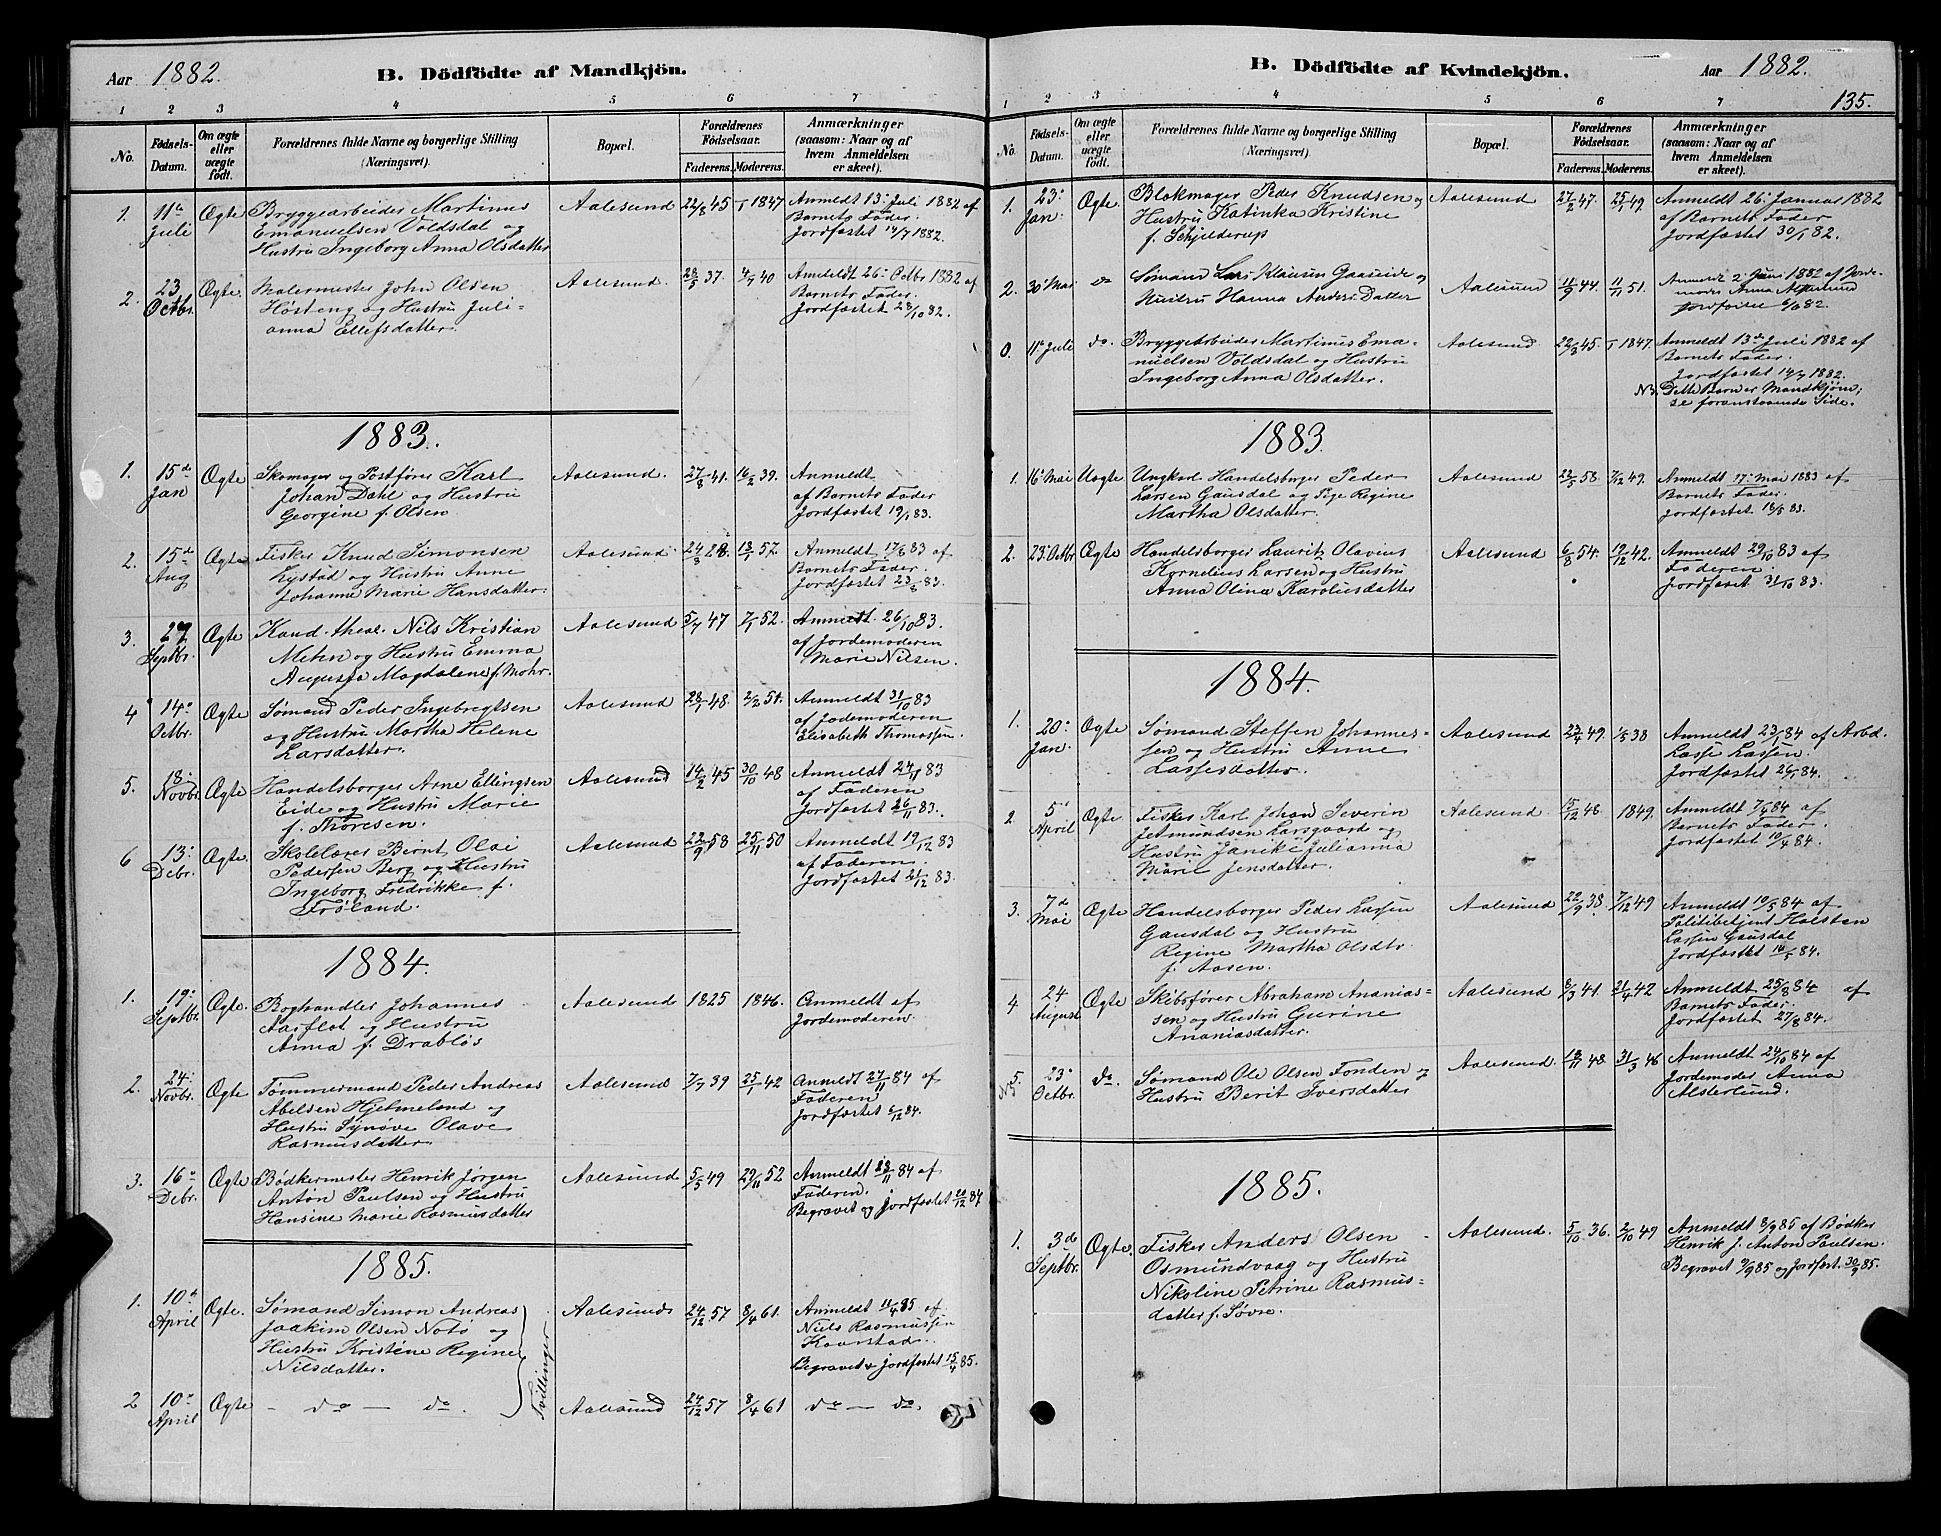 Aar 1882.
B. Dödfödte af Mandkjön.
1 2 3 4 5 6 7
No.
Födsels-Datum.
Om ægte eller uægte födt.
Forældrenes fulde Navne og borgerlige Stilling (Næringsvei).
Bopæl.
Forældrenes Födselsaar.
Faderens. Moderens.
Anmærkninger (saasom: Naar og af hvem Anmeldelsen er skeet).
1. 11te Juli Ægte Bryggearbeider Martinus Aalesund 22/8 45 1847 Anmeldt 13. Juli 1882 af
Emanuelsen Voldsdal og Barnets Fader.
Hustru Ingeborg Anna Olsdatter Jordfæstet 14/7 1882.
2. 23 Octbr. Ægte. Malermester John Olsen Aalesund. 28/5 37. 4/7 40 Anmeldt 26. Octbr 1882 af
Høsteng og Hustru Juli= Barnets Fader.
anna Ellefsdatter. Jordfæstet 28/10 82.
1883.
1. 15de Jan Ægte Skomager og Postfører Karl Aalesund. 27/8 41. 16/2 39. Anmeldt
Johan Dahl og Hustru af Barnets Fader
Georgine f. Olsen. Jordfæstet 19/1 83.
2. 15de Aug Ægte Fisker Knud Simonsen Aalesund. 24/3 28. 18/1 57. Anmeldt 17/8 83 af
Lystad og Hustru Anne Barnets Fader.
Johanne Marie Hansdatter. Jordfæstet 23/8 83.
3. 27 Septbr. Ægte Kand. theol. Nils Kristian Aalesund 5/7 47 7/1 52. Anmeldt 26/10 83.
Mehn og Hustru Emma af Jordemoderen
Augusta Magdalene f. Mohr. Marie Nilsen.
4 14. Octbr. Ægte Sømand Peder Ingebregtsen Aalesund 28/1 48. 2/2 51. Anmeldt 31/10 83
og Hustru Martha Helene af Jodemoderen
Larsdatter. Elisabeth Thomassen.
5. 18. Novbr Ægte Handelsborger Arne Ellingsen Aalesund 14/2 45 30/10 48 Anmeldt 24/11 83
Eide og Hustru Marie af Faderen
f. Thoresen. Jordfæstet 26/11 83.
6 13. Debr. Ægte. Skolelærer Bernt Olai Aalesund 22/9 58 25/11 50 Anmeldt 19/12 83
Pedersen Berg og Hustru af Faderen.
Ingeborg Fredrikke f. Jordfæstet 21/12 83.
Frøland.
1884.
1. 19. Septbr. Ægte. Boghandler Johannes Aalesund 1825 1846. Anmeldt af
Aasflot og Hustru Jordemoderen.
Anna f. Drabløs
2. 24. Novbr. Ægte Tømmermand Peder Andreas Aalesund 7/7 39 25/1 42 Anmeldt 27/11 84 af
Abelsen Hjelmeland og Faderen
Hustru Synøve Olave Jordfæstet 6/12 84.
Rasmusdatter.
3. 16. Debr. Ægte Bødkermester Henrik Jørgen Aalesund 5/5 49 29/11 52 Anmeldt af
Anton Paulsen og Hustru Faderen.
Hansine Marie Rasmusdatter Begravet og Jordfæstet 20/12 84
1885.
1. 10de April Ægte. Sømand Simon Andreas Aalesund 24/12 57 8/4 61. Anmeldt 11/4 85 af
Joakim Olsen Notø og Niels Rasmussen
Hustru Kristine Regine Kaarstad.
Nilsdatter. Begravet & Jordfæstet 15/4 85.
Tvillinger
2 10. April Ægte - do - do. Aalesund 24/12 57 8/4 61 do - do.
B. Dödfödte af Kvindekjön.
Aar 1882.
135.
1 2 3 4 5 6 7
No.
Födsels-Datum.
Om ægte eller uægte födt.
Forældrenes fulde Navne og borgerlige Stilling (Næringsvei).
Bopæl.
Forældrenes Födselsaar.
Faderens. Moderens.
Anmærkninger (saasom: Naar og af hvem Anmeldelsen er skeet).
1. 23. Jan. Ægte. Blokmager Peder Knudsen og Aalesund 27/2 47. 25/1 49. Anmeldt 26. Januar 1882
Hustru Katinka Kristine af Barnets Fader
f. Schjelderup Jordfæstet 30/1 82.
2. 30. Mai do Sømand Lars Klausen Gaaseide og Aalesund 11/9 44. 11/11 51. Anmeldt 2. Juni 1882 af Jorde-
Hustru Hanna Anders Datter moder Anna
Jordfæstet 6/6 82.
0. 11. Juli do. Bryggearbeider Martinus Ema= Aalesund 22/8 45. 1847. Anmeldt 13de Juli 1882 af
nuelsen Voldsdal og Hustru Barnets Fader.
Ingeborg Anna Olsdatter. Jordfæstet 14/7 1882.
NB. Dette Barn er Mandkjøn;
se foranstaaende Side.
1883
1. 16. Mai Uægte Ungkarl Handelsborger Peder Aalesund 22/5 58. 7/12 49. Anmeldt 17. Mai 1883 af
Larsen Gausdal og Pige Regine Barnets Fader.
Martha Olsdatter. Jordfæstet 18/5 83.
2. 23. Octbr Ægte Handelsborger Lauritz Olavius Aalesund 6/8 54. 19/12 42. Anmeldt 29/10 83 af
Kornelius Larsen og Hustru Faderen.
Anna Olina Karolusdatter Jordfæstet 31/10 83.
1884.
1. 20. Jan. Ægte Sømand Steffen Johannes= Aalesund 23/4 49. 1/5 38 Anmeldt 23/1 84 af Arbd.
sen og Hustru Anne Lasse Lassen.
Lassesdatter. Jordfæstet 26/1 84.
2 5te April Ægte. Fisker Karl Johan Severin Aalesund 15/12 48. 1849. Anmeldt 7/4 84 af
Jetmundsen Larsgaard og Barnets Fader.
Hustru Janike Julianna Jordfæstet 10/4 84.
Marie Jensdatter.
3. 7de Mai Ægte Handelsborger Peder Larsen Aalesund 22/9 38. 7/12 49 Anmeldt 10/5 84 af
Gausdal og Hustru Politibetjent Halsten
Regine Martha Olsdtr. Larsen Gausdal
f. Aasen. Jordfæstet 14/5 84.
4 24 August Ægte Skibsfører Abraham Ananias= Aalesund 8/3 41. 21/4 42 Anmeldt 25/8 84 af
sen og Hustru Gurine Barnets Fader.
Ananiasdatter. Jordfæstet 27/8 84.
5. 23. Octbr. do. Sømand Ole Olsen Fonden og Aalesund. 18/11 48 31/3 46 Anmeldt 24/10 84 af
Hustru Berit Iversdatter Jordemoder Anna
Alsterlund.
1885.
1. 3de Septbr. Ægte. Fisker Anders Olsen Aalesund 5/10 36. 2/10 49 Anmeldt 8/9 85 af Bødker
Osmundvaag og Hustru Henrik J. Anton Paulsen.
Nikoline Petrine Rasmus= Begravet 9/9 85 og Jordfæst. 30/9 85.
datter f. Søvre.